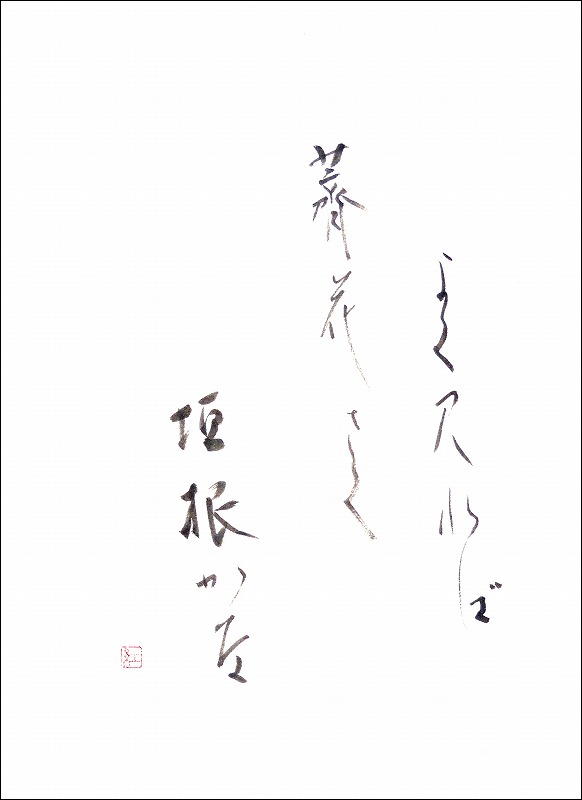 よく見れば
薺花さく
垣根かな